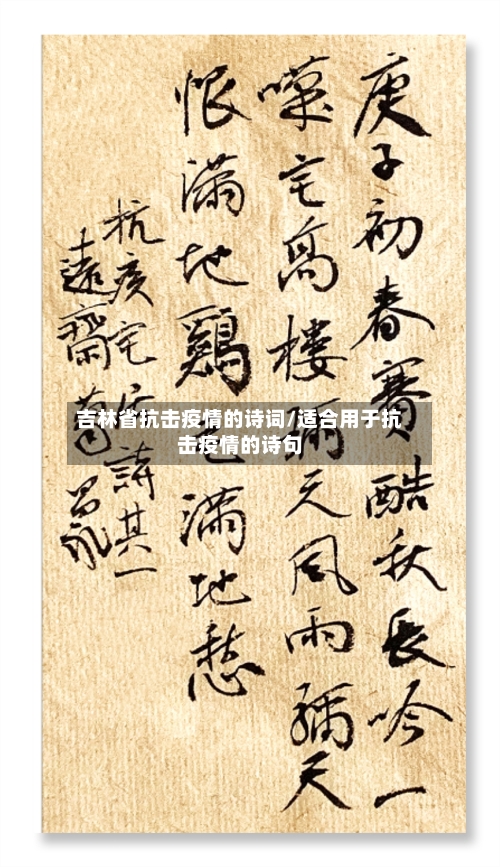 庚子初春賽酷秋長吟一
嘆宅高樓彌天風雨彌天
恨滿地鷄毛滿地愁
抗疫宅居詩其一
遠齋
吉林省抗击疫情的诗词/适合用于抗
击疫情的诗句